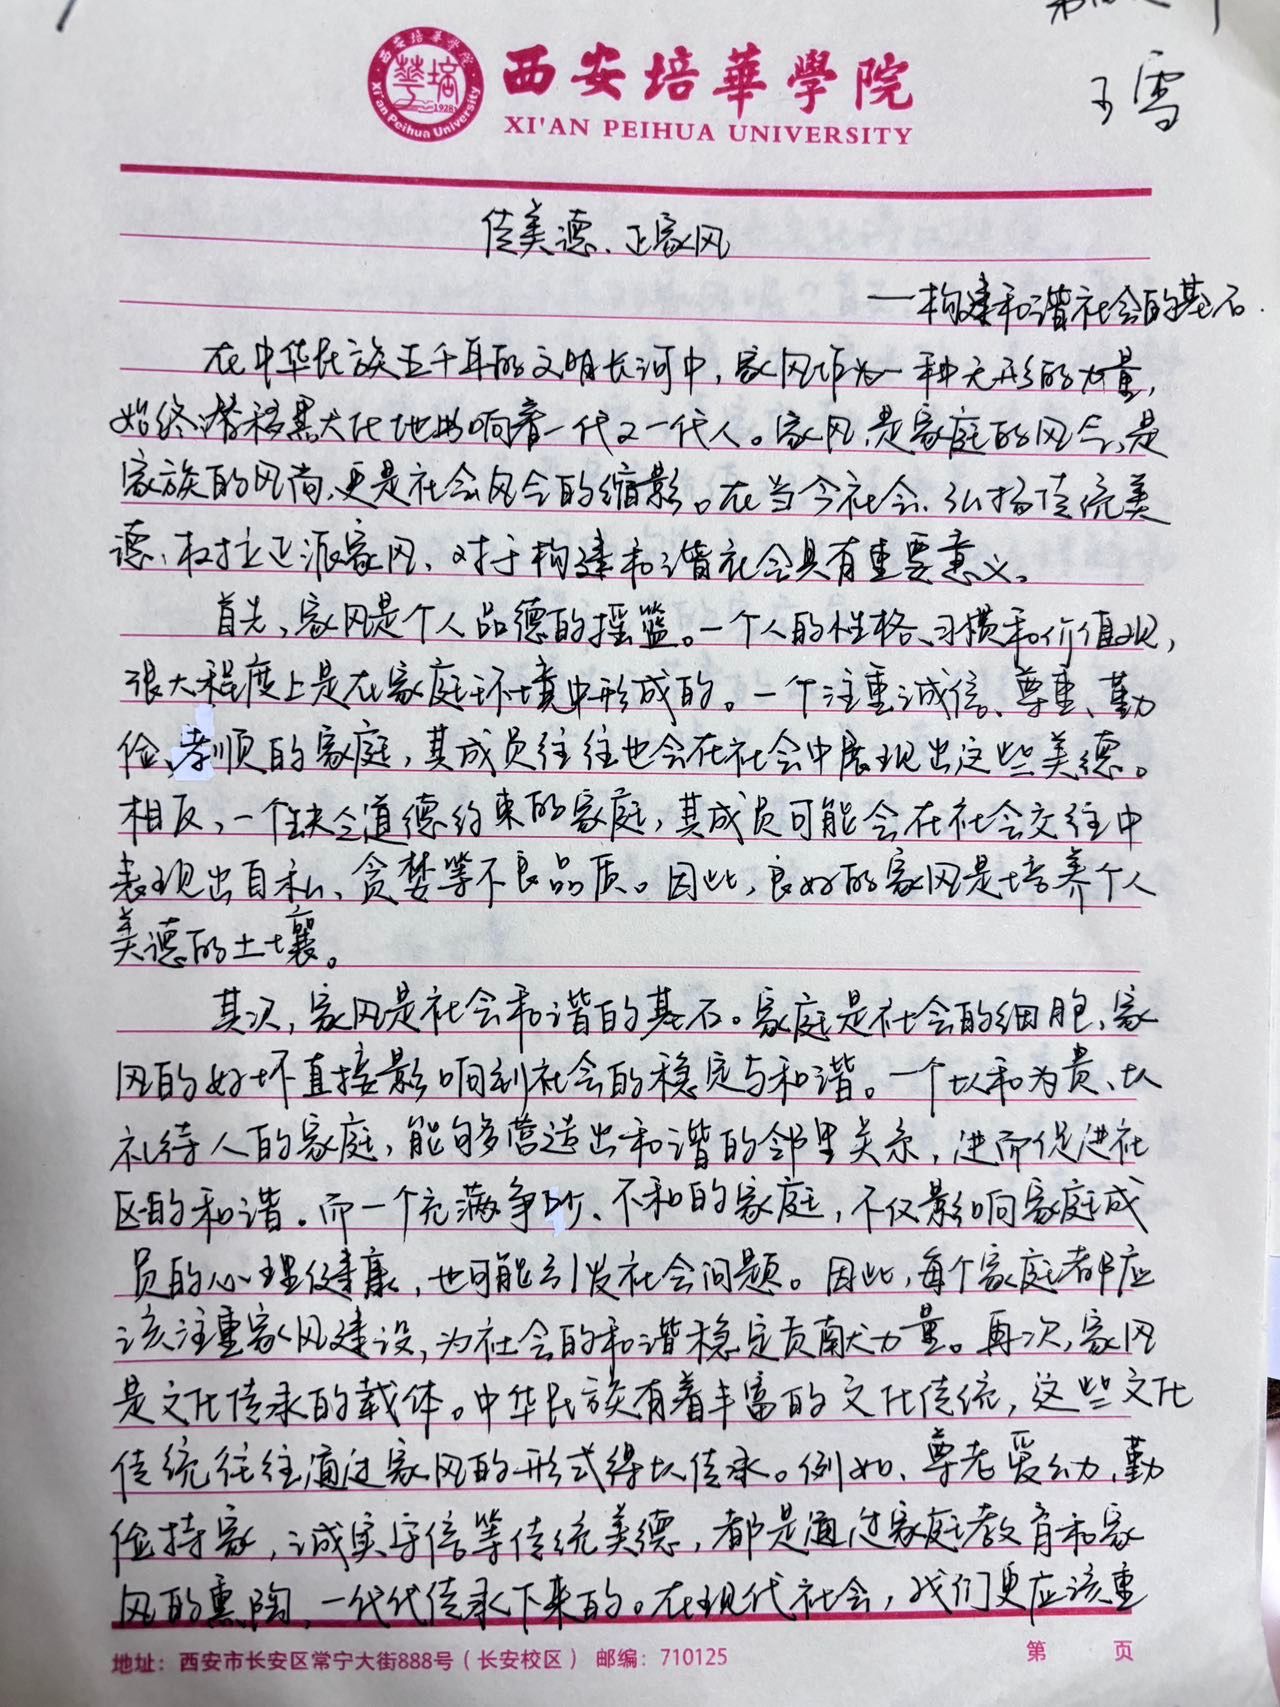 西安培華學院
XI'AN PEIHUA UNIVERSITY
西安培華學院
Xi'an Peihua University
1928
雪
传美德、正家风
——构建和谐社会的基石.
在中华民族五千年的文明长河中，家风作为一种无形的力量，
始终潜移默化地影响着一代又一代人。家风，是家庭的风气，是
家族的风尚，更是社会风气的缩影。在当今社会、弘扬传统美
德、树立正派家风、对于构建和谐社会具有重要意义。
首先，家风是个人品德的摇篮。一个人的性格、习惯和价值观，
很大程度上是在家庭环境中形成的。一个注重诚信、尊重、勤
俭、孝顺的家庭，其成员往往也会在社会中展现出这些美德。
相反，一个缺乏道德约束的家庭，其成员可能会在社会交往中
表现出自私、贪婪等不良品质。因此，良好的家风是培养个人
美德的土壤。
其次，家风是社会和谐的基石。家庭是社会的细胞，家
风的好坏直接影响到社会的稳定与和谐。一个以和为贵、以
礼待人的家庭，能够营造出和谐的邻里关系，进而促进社
区的和谐。而一个充满争吵、不和的家庭，不仅影响家庭成
员的心理健康，也可能引发社会问题。因此，每个家庭都应
该注重家风建设，为社会的和谐稳定贡献力量。再次，家风
是文化传承的载体。中华民族有着丰富的文化传统，这些文化
传统往往通过家风的形式得以传承。例如、尊老爱幼、勤
俭持家，诚实守信等传统美德，都是通过家庭教育和家
风的熏陶，一代代传承下来的。在现代社会，我们更应该重
地址：西安市长安区常宁大街888号（长安校区） 邮编：710125
第 页